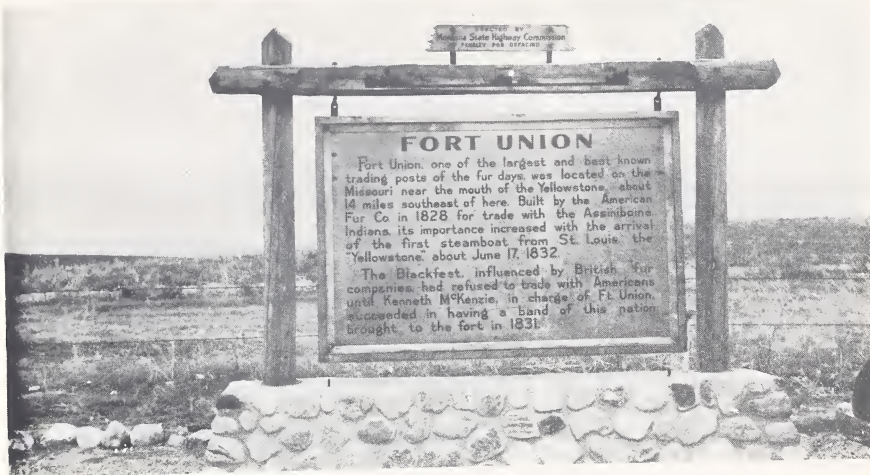 ERECTED BY
Montana State Highway Commission
PENALTY FOR DEFACING
FORT UNION
Fort Union, one of the largest and best known
trading posts of the fur days, was located on the
Missouri near the mouth of the Yellowstone, about
14 miles southeast of here. Built by the American
Fur Co. in 1828 for trade with the Assiniboine
Indians, its importance increased with the arrival
of the first steamboat from St. Louis, the
"Yellowstone," about June 17, 1832.
The Blackfeet, influenced by British fur
companies, had refused to trade with Americans
until Kenneth McKenzie, in charge of Ft. Union,
succeeded in having a band of this nation
brought to the fort in 1831.